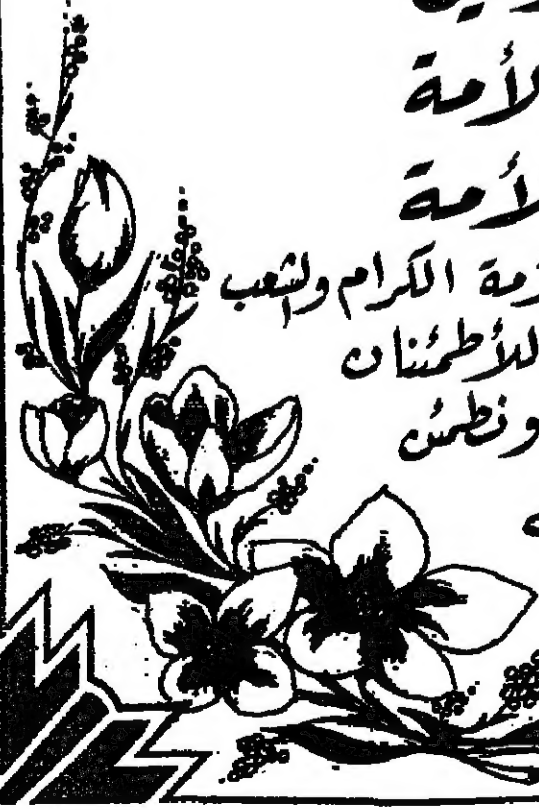 لأمة
لأمة
مة الكرام والشعب
للأطمئنان
ونطمئن